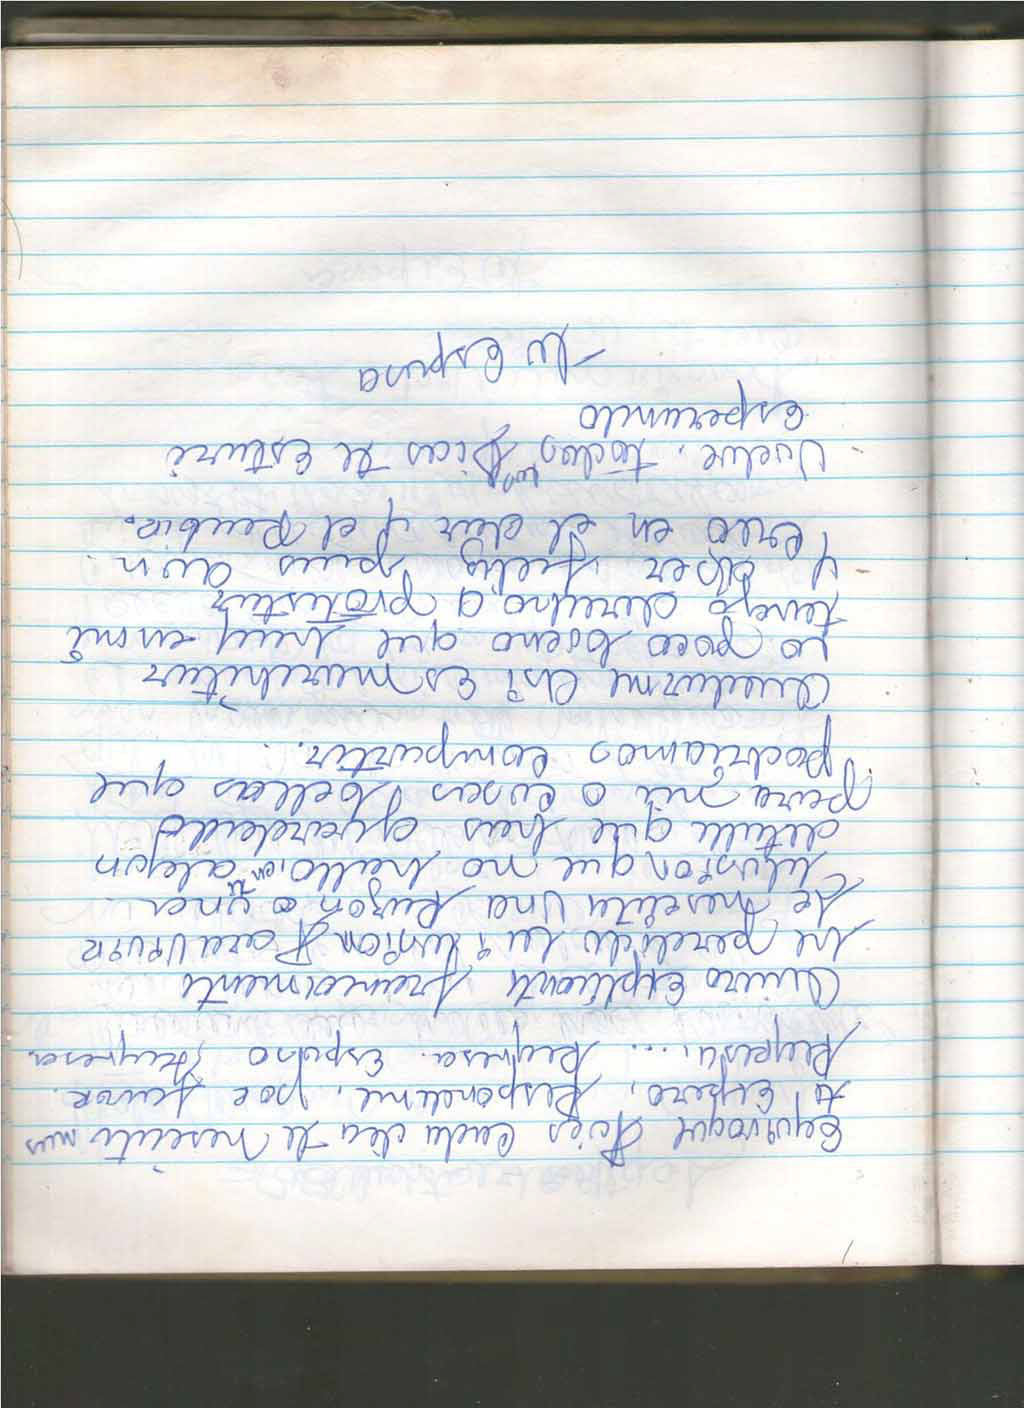 Equivoque Pues cada dia te nesecito mas
te Espero, Respondeme, por favor.
Regresa.... Regresa. Espero Regresa.
Quiero Explicarte francamente
he perdido la ilusion Para vivir
se nesecita Una Razon o una
ilusion que no hallo, en algun
detalle que has guardado
para mi o cosas bellas que
podriamos compartir.
Quedarme Asi Es marchitar
lo poco bueno que hay en mi
tengo derecho a protestar
Y a ser feliz pues aun
creo en el dar y el Recibir.
Vuelve, todos los Dias te Estaré
esperando
- tu Esposa